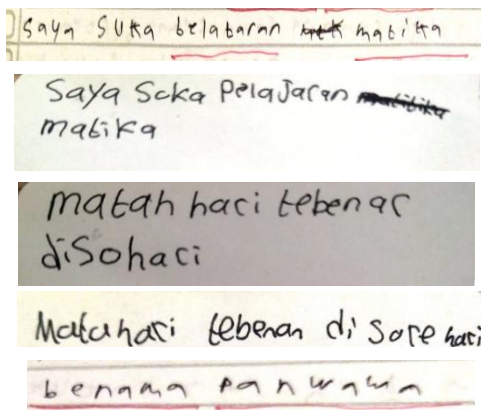 saya suka belabaran matika
Saya Scka Pelajaran
matika
matah hari tebenar
disohari
Matahari tebenan di sore hari
benama panwawa